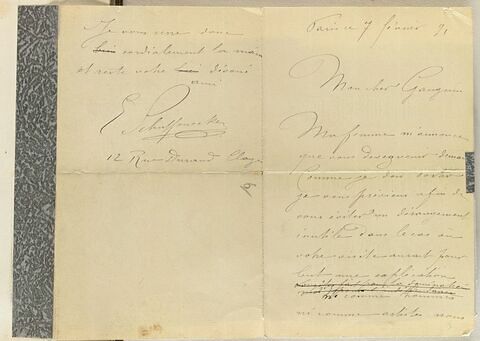 Paris 7 février 91
Mon cher Gauguin
Ma femme m'annonce
que vous
Comme je dois sortir
je vous préviens afin de
vous éviter un dérangement
inutile dans le cas où
votre visite aurait pour
but une explication
ni comme hommes
ni comme artistes nous
Je vous serre donc
cordialement la main
et reste votre dévoué
ami
E Schuffenecker
12 Rue Durand Claye